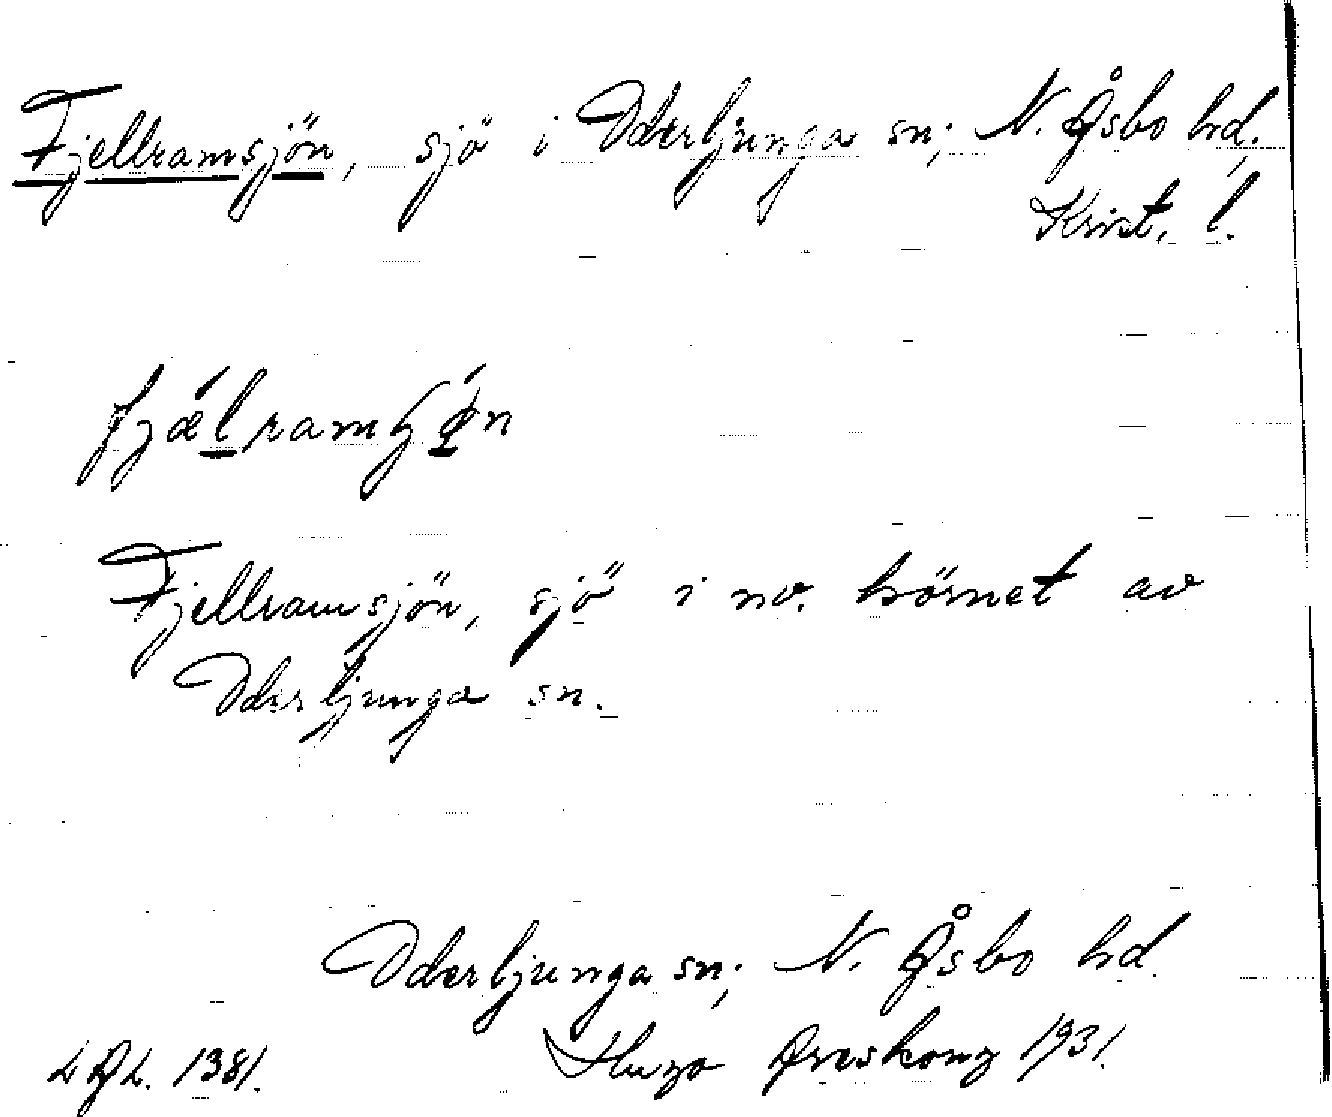 Fjellramsjön, sjö i Oderljunga sn; N. Åsbo hd,
Krist. l.
fjælramʃøn
Fjellramsjön, sjö i nv. hörnet av
Oderljunga sn.
Oderljunga sn; N. Åsbo hd.
Hugo Areskoug 1931.
LAL. 1381.